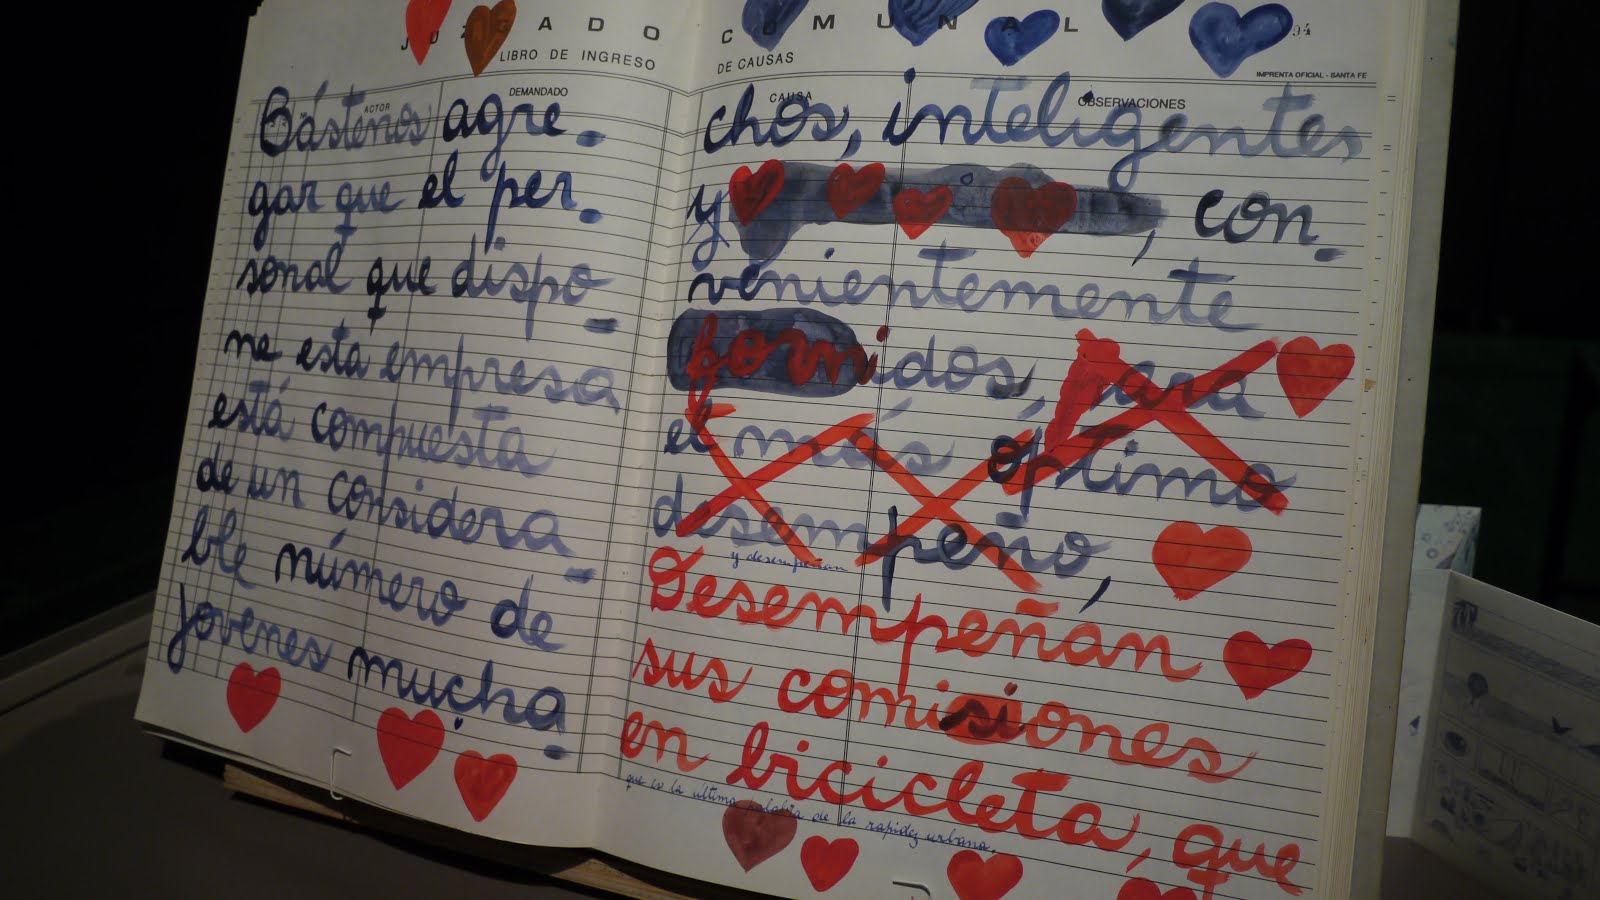 JUZGADO COMUNAL
94
LIBRO DE INGRESO DE CAUSAS
IMPRENTA OFICIAL - SANTA FE
ACTOR
DEMANDADO
CAUSA
OBSERVACIONES
Básteños agre-
gar que el per-
sonal que dispo-
ne esta empresa
está compuesta
de un considera-
ble número de
jóvenes mucha-
chos, inteligentes
y , con-
venientemente
fornidos, para
el más óptimo
desempeño,
y desempeñan
Desempeñan
sus comisiones
en bicicleta, que
que es la última palabra de la rapidez urbana.